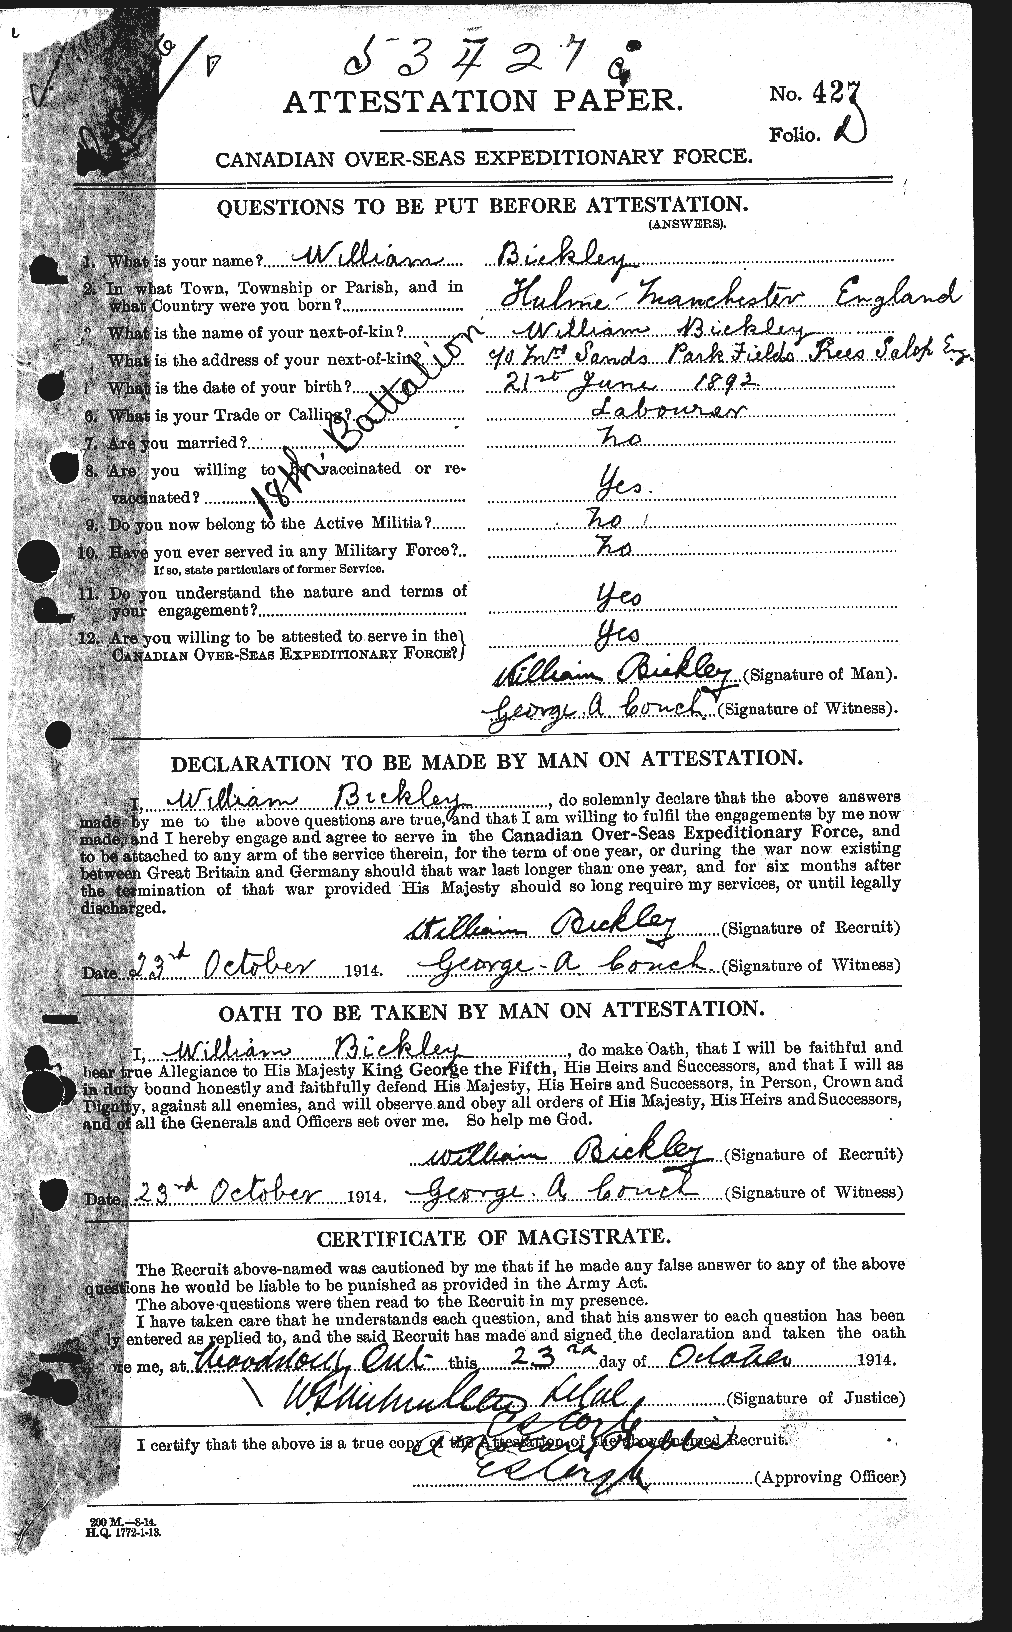 53427
ATTESTATION PAPER.
No. 427
Folio. D
CANADIAN OVER-SEAS EXPEDITIONARY FORCE.
QUESTIONS TO BE PUT BEFORE ATTESTATION.
(ANSWERS).
1. What is your name? William Bickley
2. In what Town, Township or Parish, and in
what Country were you born? Hulme Manchester England
What is the name of your next-of-kin? William Bickley
What is the address of your next-of-kin? c/o Mrs Sands Park Fields Prees Salop Eng.
What is the date of your birth? 21st June 1892
6. What is your Trade or Calling? Labourer
7. Are you married? No
8. Are you willing to be vaccinated or re-
vaccinated? Yes.
9. Do you now belong to the Active Militia? No
10. Have you ever served in any Military Force? No
If so, state particulars of former Service.
11. Do you understand the nature and terms of
your engagement? Yes
12. Are you willing to be attested to serve in the
CANADIAN OVER-SEAS EXPEDITIONARY FORCE? Yes
18th Battalion
William Bickley (Signature of Man).
George A Couch (Signature of Witness).
DECLARATION TO BE MADE BY MAN ON ATTESTATION.
I, William Bickley, do solemnly declare that the above answers
made by me to the above questions are true, and that I am willing to fulfil the engagements by me now
made, and I hereby engage and agree to serve in the Canadian Over-Seas Expeditionary Force, and
to be attached to any arm of the service therein, for the term of one year, or during the war now existing
between Great Britain and Germany should that war last longer than one year, and for six months after
the termination of that war provided His Majesty should so long require my services, or until legally
discharged.
William Bickley (Signature of Recruit)
Date 23rd October 1914. George A Couch (Signature of Witness)
OATH TO BE TAKEN BY MAN ON ATTESTATION.
I, William Bickley, do make Oath, that I will be faithful and
bear true Allegiance to His Majesty King George the Fifth, His Heirs and Successors, and that I will as
in duty bound honestly and faithfully defend His Majesty, His Heirs and Successors, in Person, Crown and
Dignity, against all enemies, and will observe and obey all orders of His Majesty, His Heirs and Successors,
and of all the Generals and Officers set over me. So help me God.
William Bickley (Signature of Recruit)
Date 23rd October 1914. George A Couch (Signature of Witness)
CERTIFICATE OF MAGISTRATE.
The Recruit above-named was cautioned by me that if he made any false answer to any of the above
questions he would be liable to be punished as provided in the Army Act.
The above-questions were then read to the Recruit in my presence.
I have taken care that he understands each question, and that his answer to each question has been
ly entered as replied to, and the said Recruit has made and signed the declaration and taken the oath
re me, at Woodstock Ont this 23rd day of October 1914.
(Signature of Justice)
I certify that the above is a true copy of the Attestation of the above-named Recruit.
(Approving Officer)
200 M.—8-14.
H.Q. 1772-1-13.